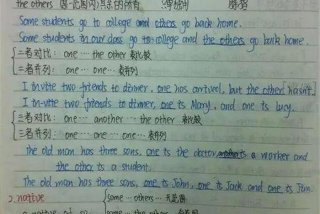 the others 
Some students go to college and others go back home.
Some students in our class go to college and the others go back home.
二者对比: one … the other 表比较
二者并列: one … one 表并列
I invite two friends to dinner, one has arrived, but the other hasn't.
I invite two friends to dinner, one is Mary, and one is Lucy.
三者对比: one … another … the other
三者并列: one … one … one … 表并列
The old man has three sons, one is the doctor, is a worker and
the other is a student.
The old man has three sons, one is John, one is Jack and one is Jim.
some … others …
some … the others